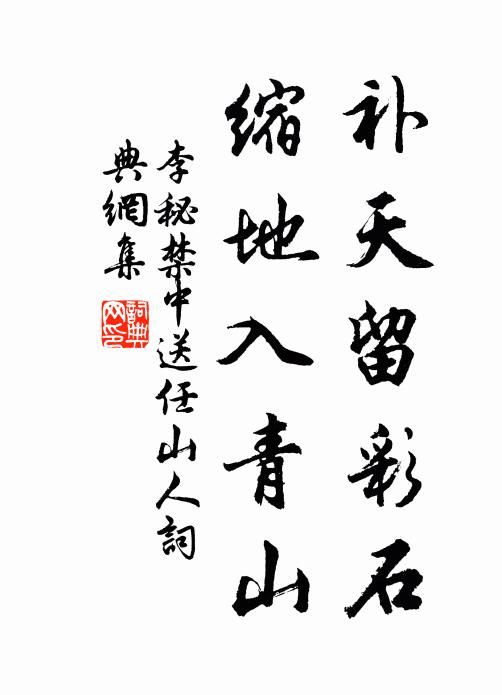 补天留彩石
缩地入青山
李秘禁中送任山人词
典网集
词典网印